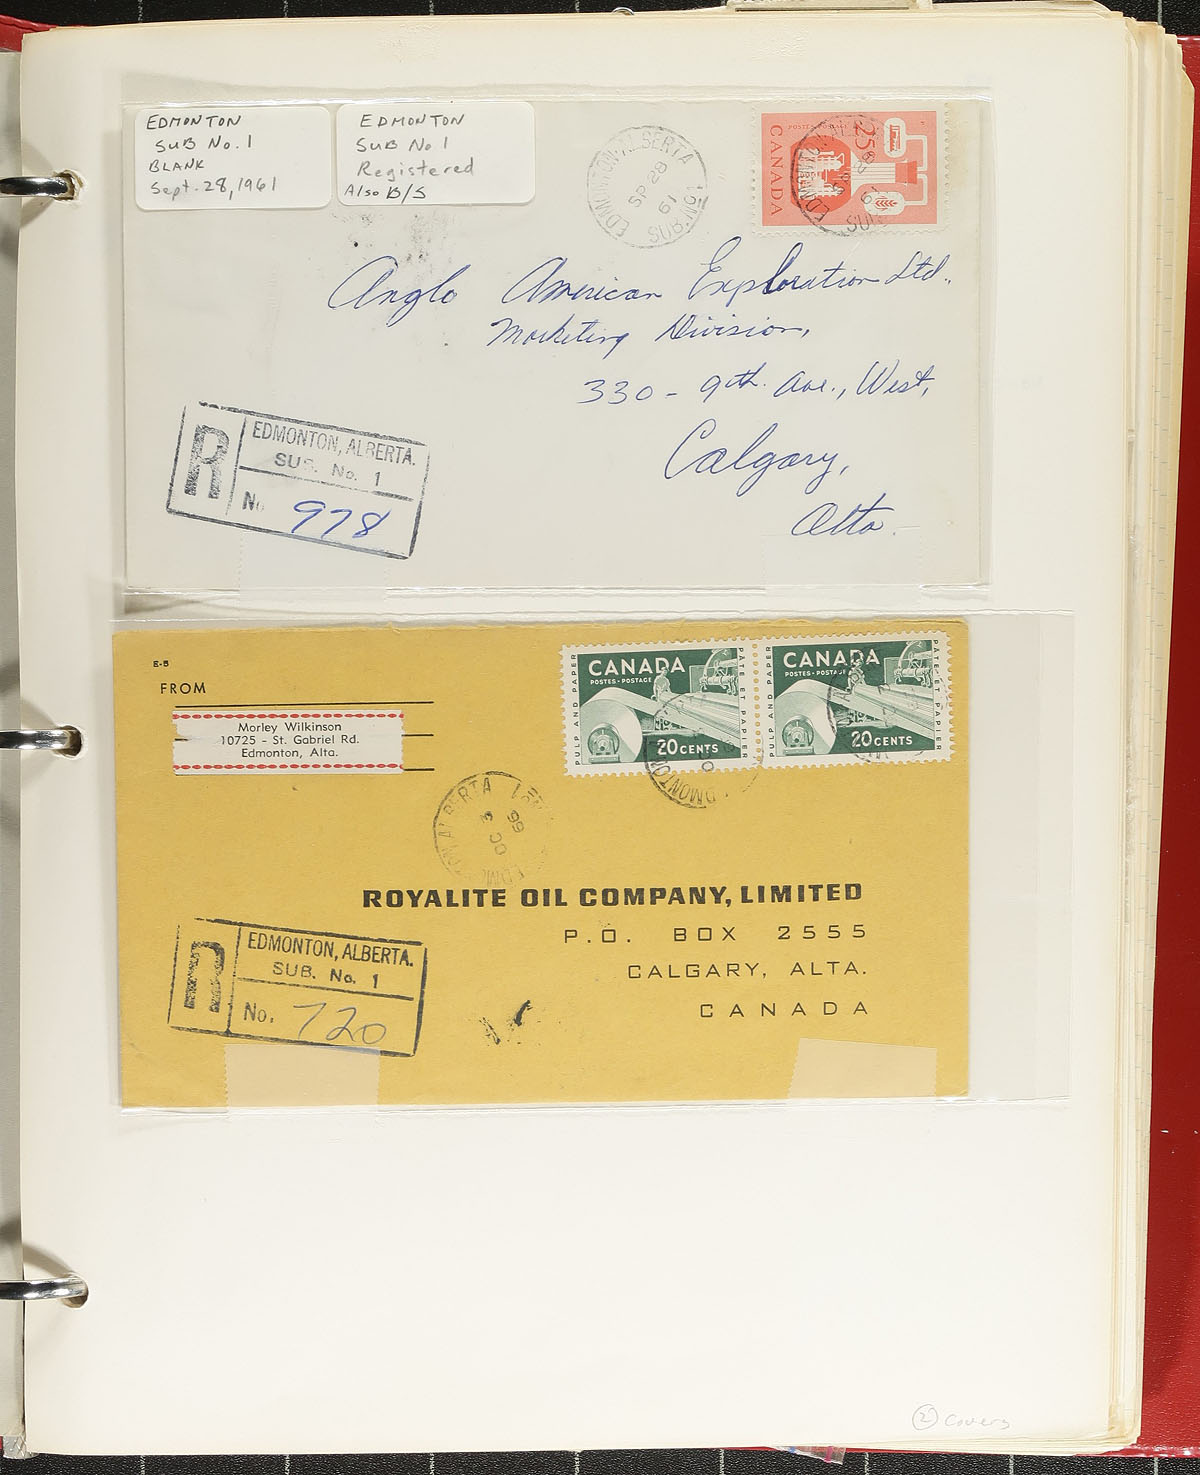 EDMONTON
SUB No. 1
BLANK
Sept. 28, 1961
EDMONTON
SUB No 1
Registered
Also B/S
EDMONTON ALBERTA
SP 28
61
SUB No 1
POSTES
25
CANADA
Anglo American Exploration Ltd.,
Marketing Division,
330 - 9th. Ave., West,
Calgary,
Alta.
R
EDMONTON, ALBERTA.
SUB. No. 1
No. 978
E-5
FROM
Morley Wilkinson
10725 - St. Gabriel Rd.
Edmonton, Alta.
CANADA
POSTES - POSTAGE
PULP AND PAPER
PATE ET PAPIER
20 CENTS
CANADA
POSTES - POSTAGE
PULP AND PAPER
PATE ET PAPIER
20 CENTS
ALBERTA
OC 3
66
EDMONTON
ROYALITE OIL COMPANY, LIMITED
P.O. BOX 2555
CALGARY, ALTA.
CANADA
R
EDMONTON, ALBERTA.
SUB. No. 1
No. 720
2 Covers